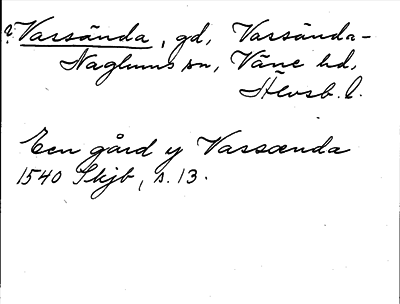 ?Varsända, gd, Varsända-
Naglums sn, Väne hd,
Älvsb. l.
Een gård y Varsænda
1540 Skjb, s. 13.